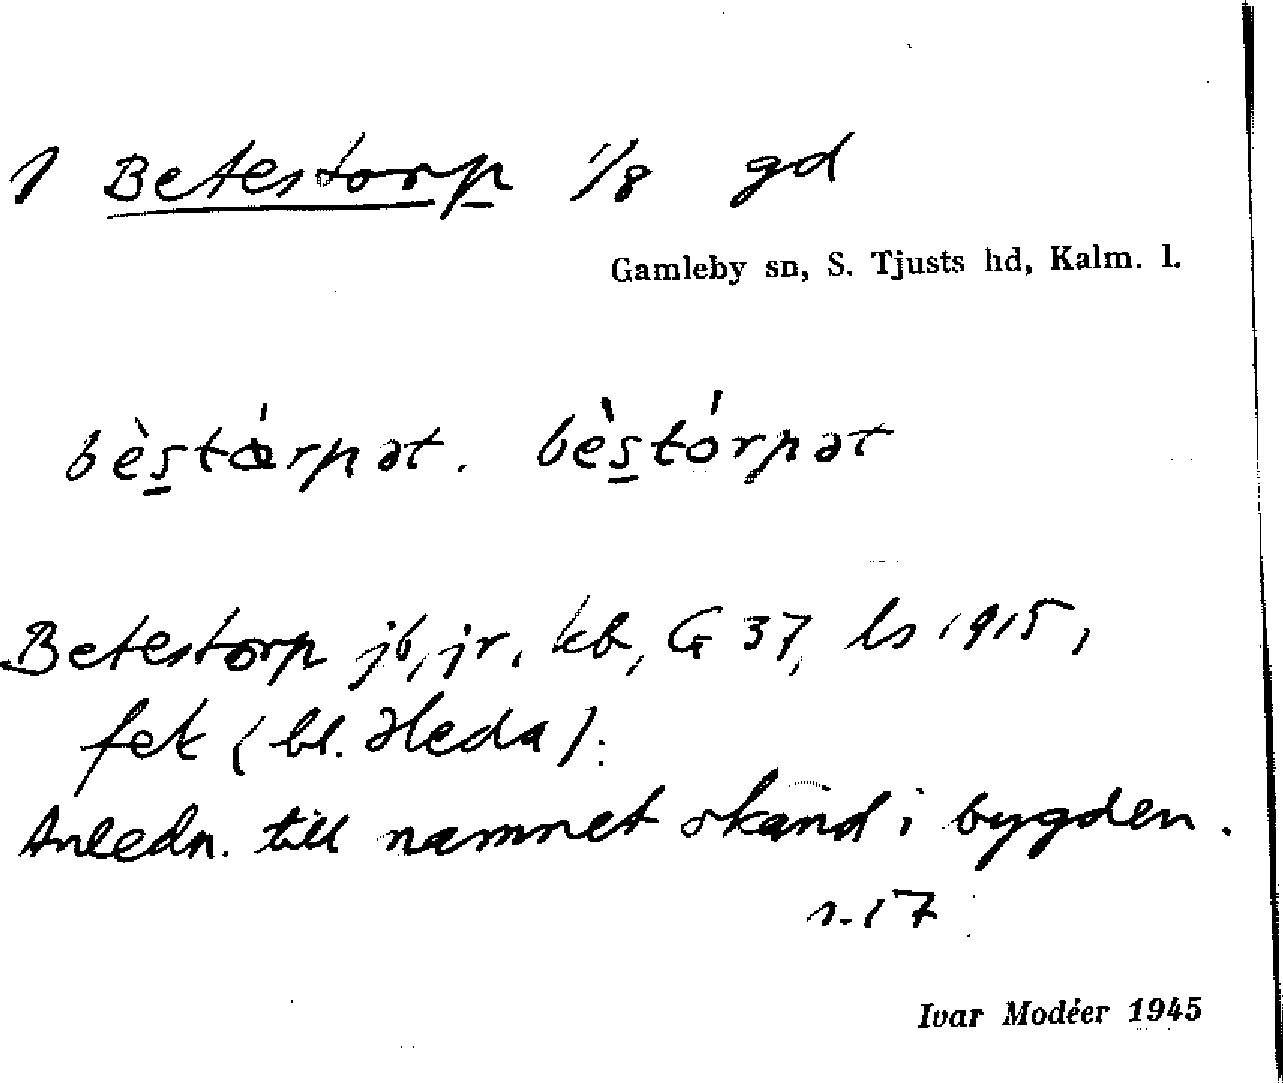 1 Betestorp 1/8 gd
Gamleby sn, S. Tjusts hd, Kalm. l.
bèstórpət. bèstórpət
Betestorp jb, jr, kb, G 37, ls 1915,
fek (bl. Heda).
Anledn. till namnet okänd i bygden.
s. 17
Ivar Modéer 1945